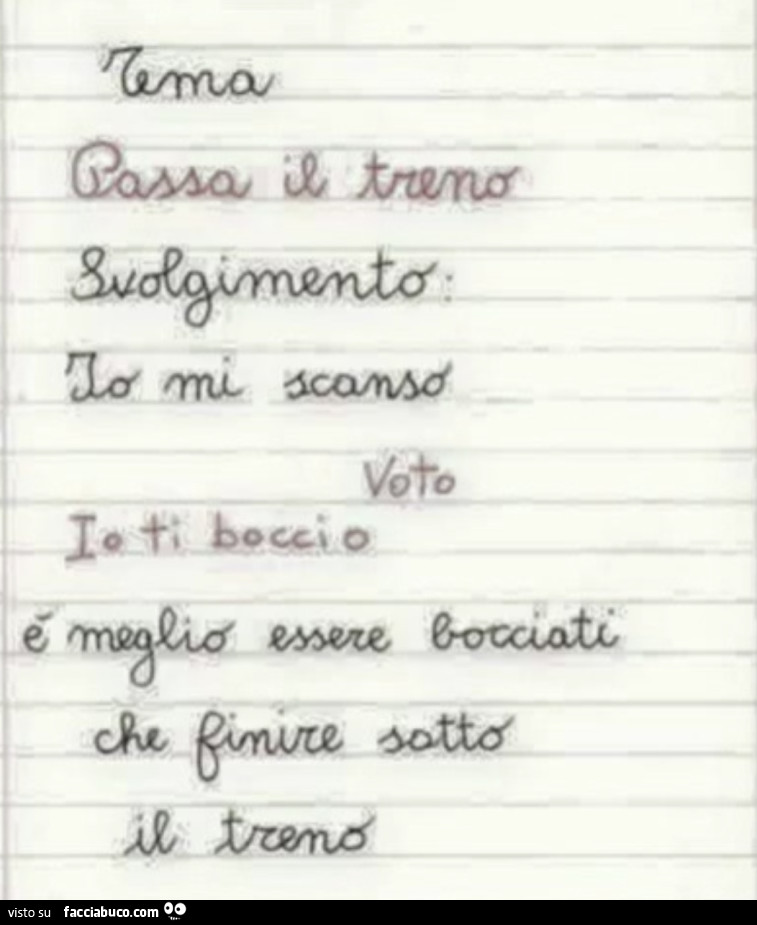 Tema
Passa il treno
Svolgimento:
Io mi scanso
Voto
Io ti boccio
é meglio essere bocciati
che finire sotto
il treno
visto su facciabuco.com